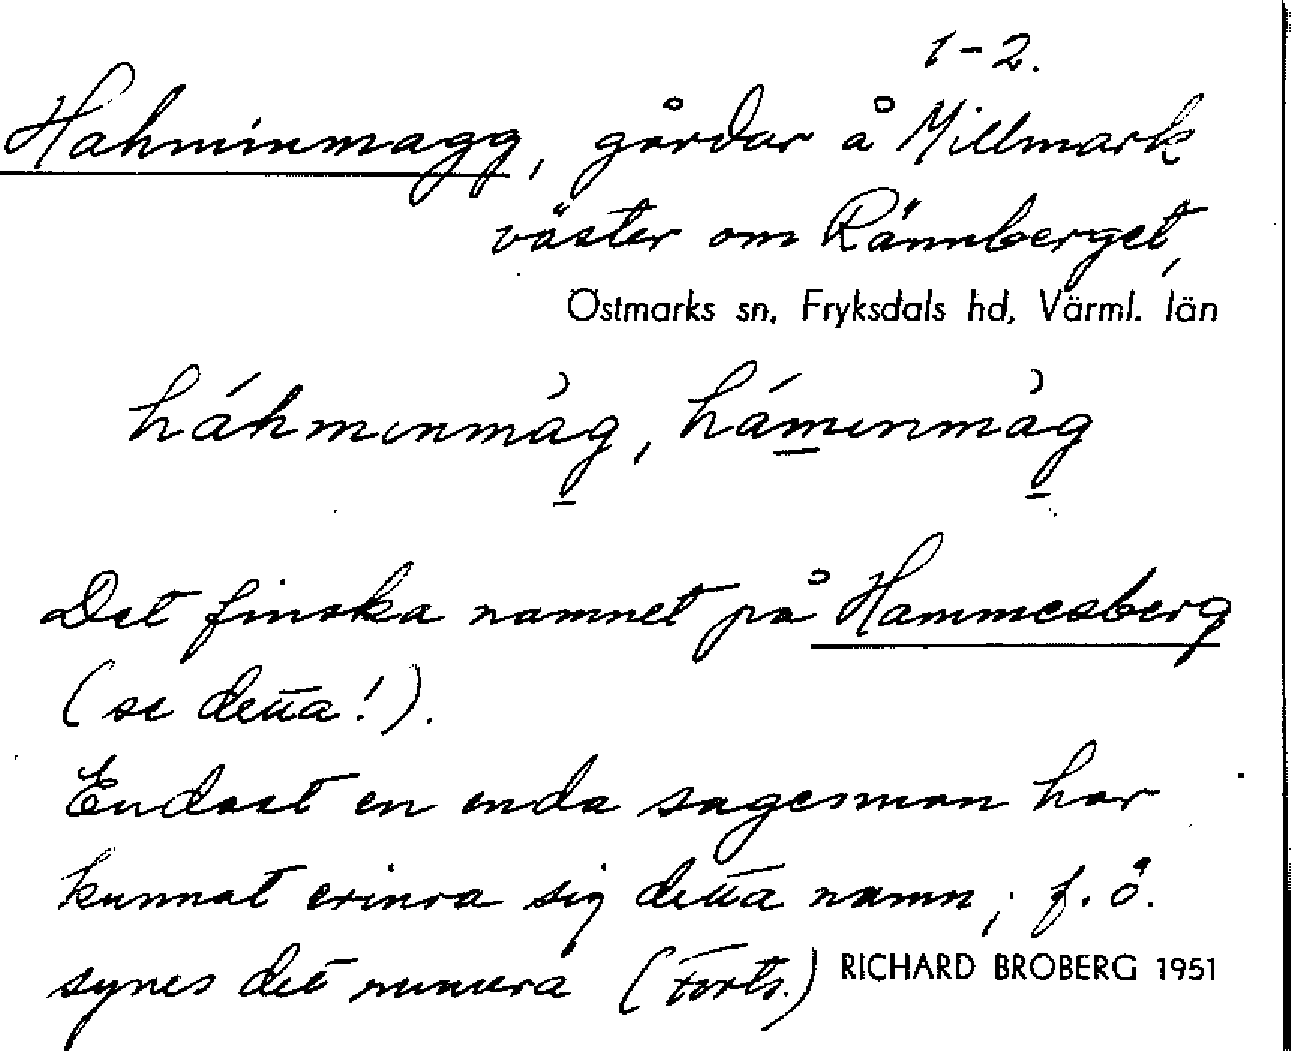 1-2.
Hahminmagg, gårdar å Millmark
väster om Rännberget,
Östmarks sn, Fryksdals hd, Värml. län
háhmınmàg, hámınmàg
Det finska namnet på Hammesberg
(se detta!).
Endast en enda sagesman har
kunnat erinra sig detta namn; f. ö.
synes det numera (Forts.) RICHARD BROBERG 1951